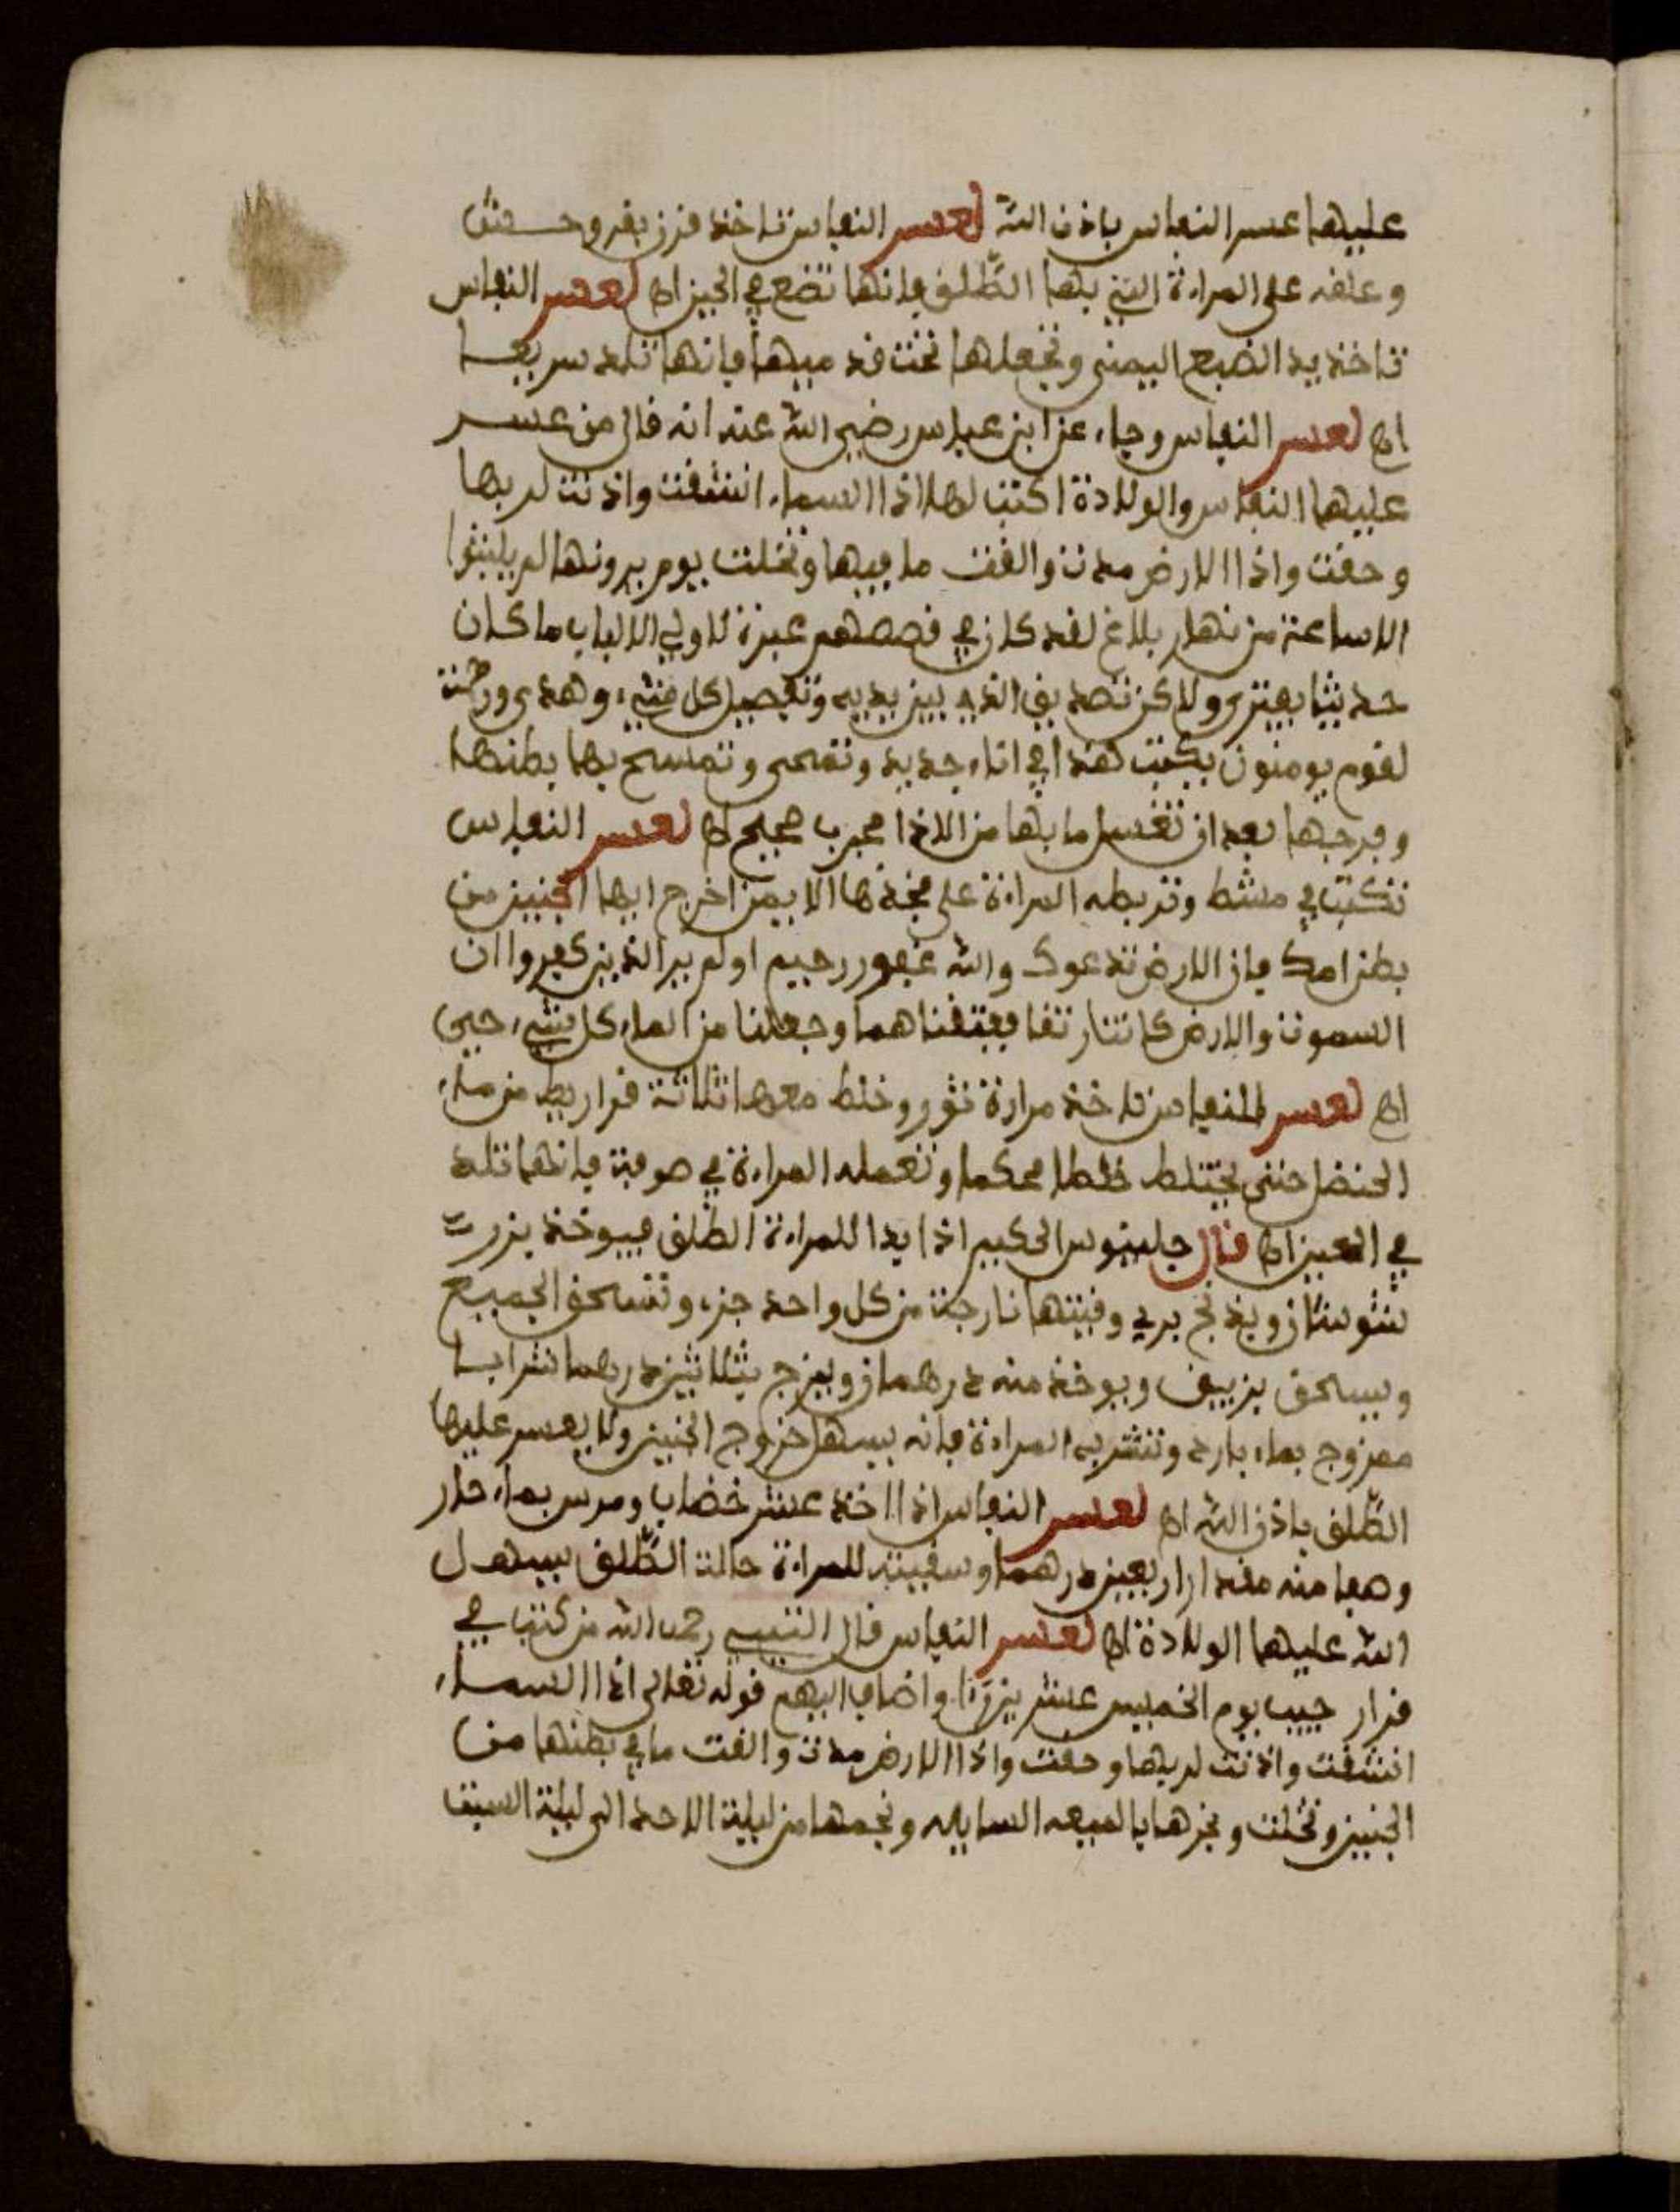 عليها عسر النفاس باذن الله لعسر النفاس تاخذ قرن بقر وحش
وعلقه على المراءة التي بها الطلق فانها تضع في الحين اه لعسر النفاس
تاخذ يد الضبع اليمنى وتجعلها تحت قد ميها فانها تلد سريعا
اه لعسر النفاس وجاء عن ابن عباس رضي الله عنه انه قال من عسر
عليها النفاس والولادة اكتب لها اذا السماء انشقت واذنت لربها
وحقت واذا الارض مدت والقت ما فيها وتخلت يوم يرونها لم يلبثوا
الا ساعة من نهار بلاغ لقد كان في قصصهم عبرة لاولي الالباب ما كان
حديثا يفترى ولاكن تصديق الذي بين يديه وتفصيل كل شيء وهدى ورحمت
لقوم يومنون يكتب هذا في اناء جديد وتمحى وتمسح بها بطنها
وفرجها بعد ان تغسل ما بها من الاذا مجرب صحيح اه لعسر النفاس
تكتب في مشط وتربطه المراءة على فخذها الايمن اخرج ايها الجنين من
بطن امك فان الارض تدعوك والله غفور رحيم اولم ير الذين كفروا ان
السموت والارض كانتا رتقا ففتقناهما وجعلنا من الماء كل شيء حيي
اه لعسر النفاس تاخذ مرارة ثور وخلط معها ثلاثة قراريط من ماء
الحنضل حتى يختلط خلطا محكما وتعمله المراءة في صوفة فانها تلد
في الحين اه قال جلينوس الحكيم اذا بدا للمراءة الطلق فيوخذ بزرت
شوشان وبذنج بري وقيتها نارجة من كل واحد جزء وتسحق الجميع
ويسحق بزييق ويوخذ منه درهمان ويمزج بثلاثين درهما شرابا
ممزوج بماء بارد وتشربه المراءة فانه يسهل خروج الجنين ولا يعسر عليها
الطلق باذن الله اه لعسر النفاس اذا اخذ عشر خضاب ومرس بماء حار
وصفا منه مقدار اربعين درهما وسقيته للمراءة حالت الطلق يسهل
الله عليها الولادة اه لعسر النفاس قال الشيخ رحمه الله من كتب في
قرار جيب يوم الخميس عشرين واضاف اليهم قوله تعالى اذا السماء
انشقت واذنت لربها وحقت واذا الارض مدت والقت ما في بطنها من
الجنين وتخلت وبخرها بالميعه السايله ونجمها من ليلة الاحد الى ليلة السبت